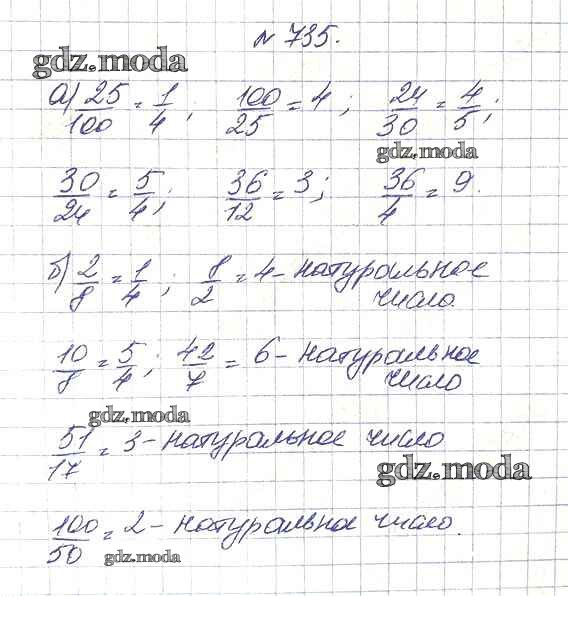 № 735.
gdz.moda
а) 25/100 = 1/4 ; 100/25 = 4 ; 24/30 = 4/5 ;
gdz.moda
30/24 = 5/4 ; 36/12 = 3 ; 36/4 = 9.
б) 2/8 = 1/4 ; 8/2 = 4 - натуральное
число.
10/8 = 5/4 ; 42/7 = 6 - натуральное
число
gdz.moda
51/17 = 3 - натуральное число
gdz.moda
100/50 = 2 - натуральное число.
gdz.moda